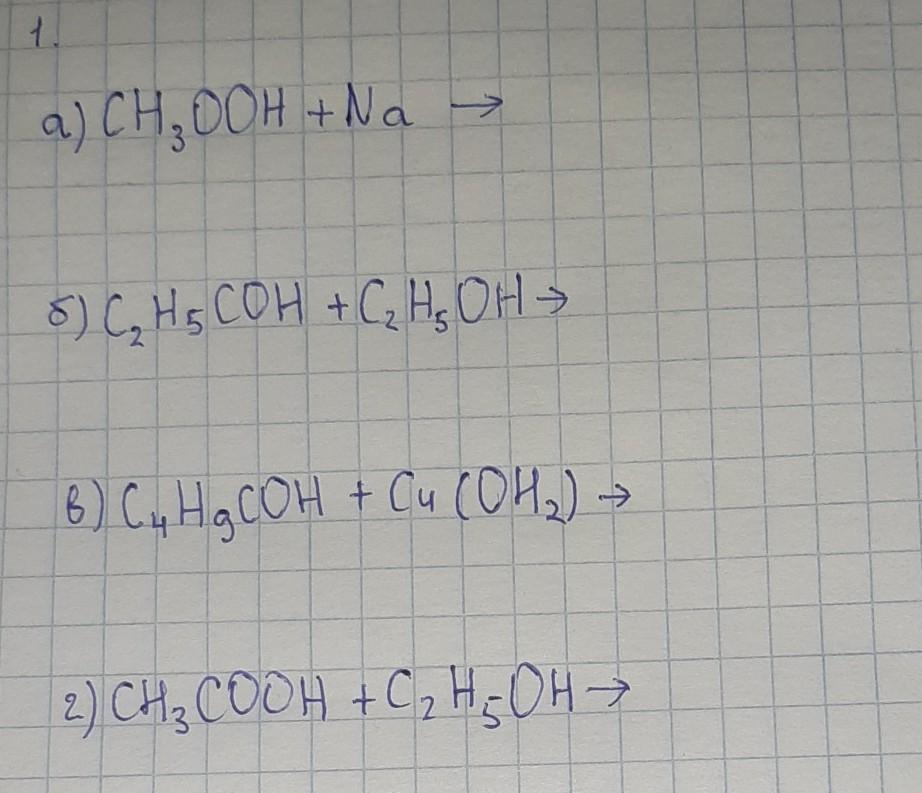 1.
а) CH₃OOH + Na →
б) C₂H₅COH + C₂H₅OH →
в) C₄H₉COH + Cu(OH₂) →
г) CH₃COOH + C₂H₅OH →